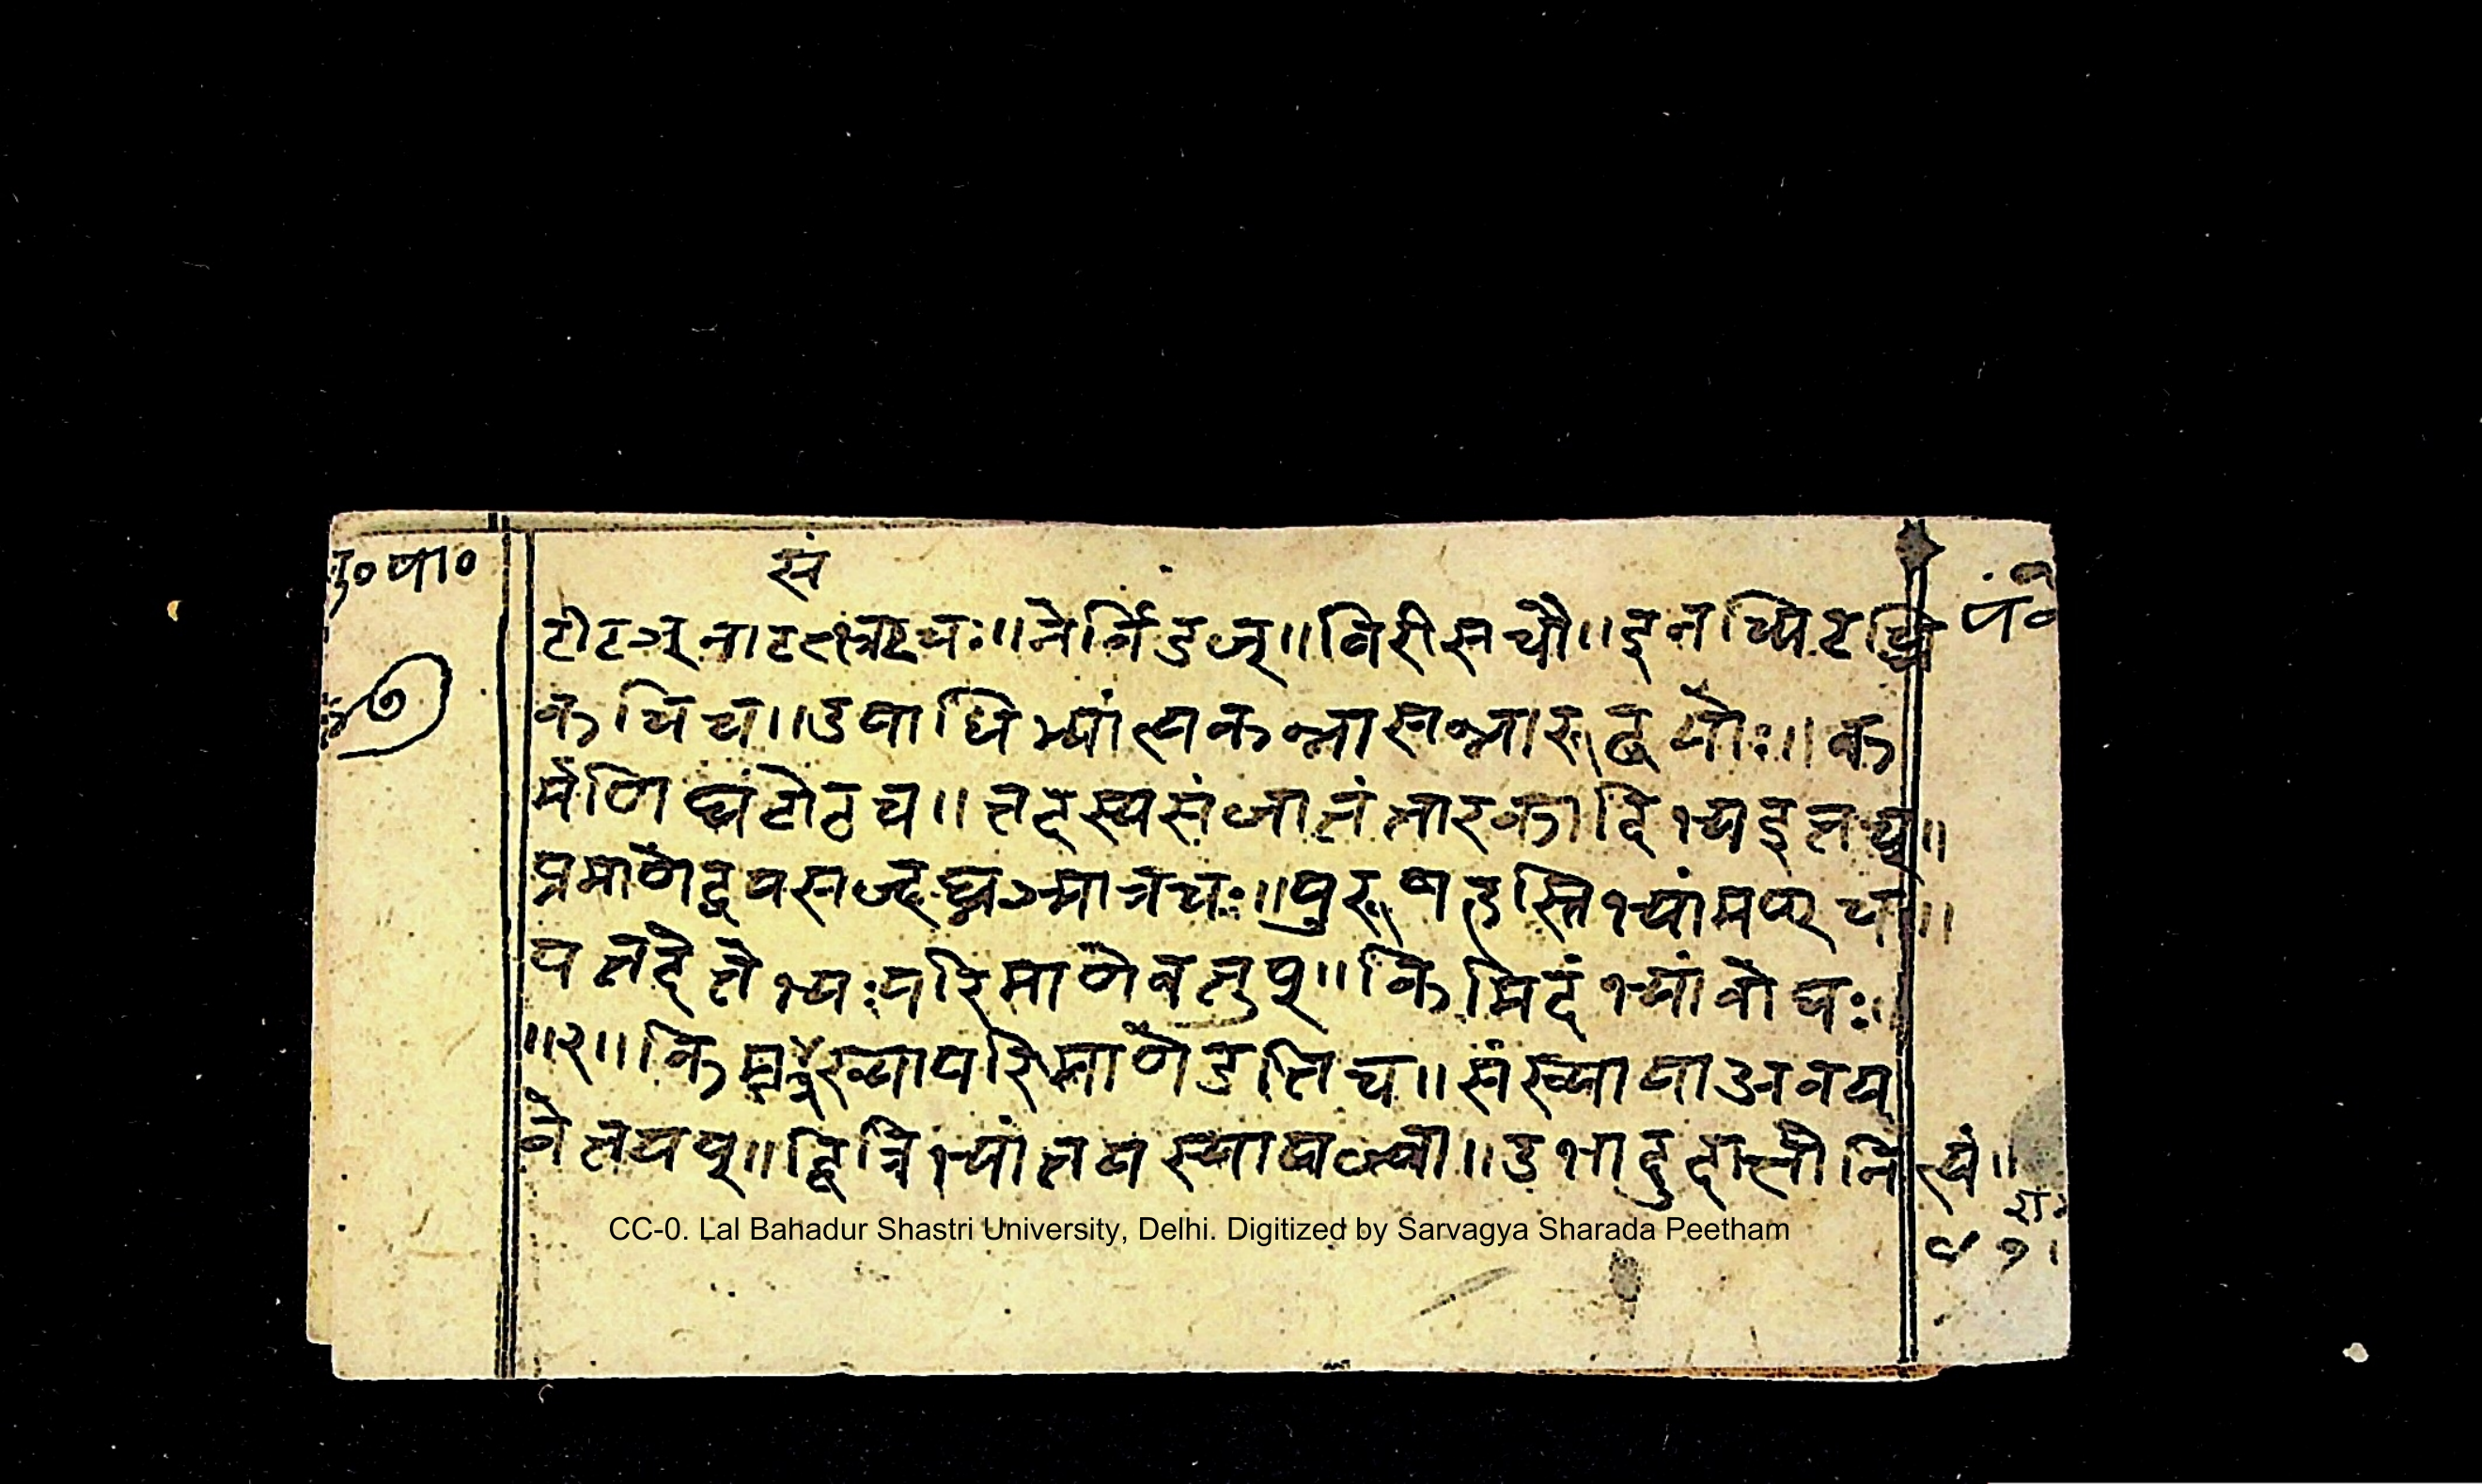 सं
टीटञ्नाटच्भ्रटचः॥नेर्बिडज्॥बिरीसचौ॥इनच्पिटच्चि
कचिच॥उपाधिभ्यांत्यकन्नासन्नारूढयोः॥क
र्मणिघटोठच॥तदस्यसंजातंतारकादिभ्यइतच्॥
प्रमाणेद्वयसज्दघ्नञ्मात्रचः॥पुरुषहस्तिभ्यांमण्च॥
यत्तदेतेभ्यःपरिमाणेवतुप्॥किमिदंभ्यांवोघः॥
॥२॥किमःसंख्यापरिमाणेडतिच॥संख्यायाअवय
वेतयप्॥द्वित्रिभ्यांतयस्यायज्वा॥उभादुदात्तोनित्यं॥
पं॰
पा॰
७
CC-0. Lal Bahadur Shastri University, Delhi. Digitized by Sarvagya Sharada Peetham